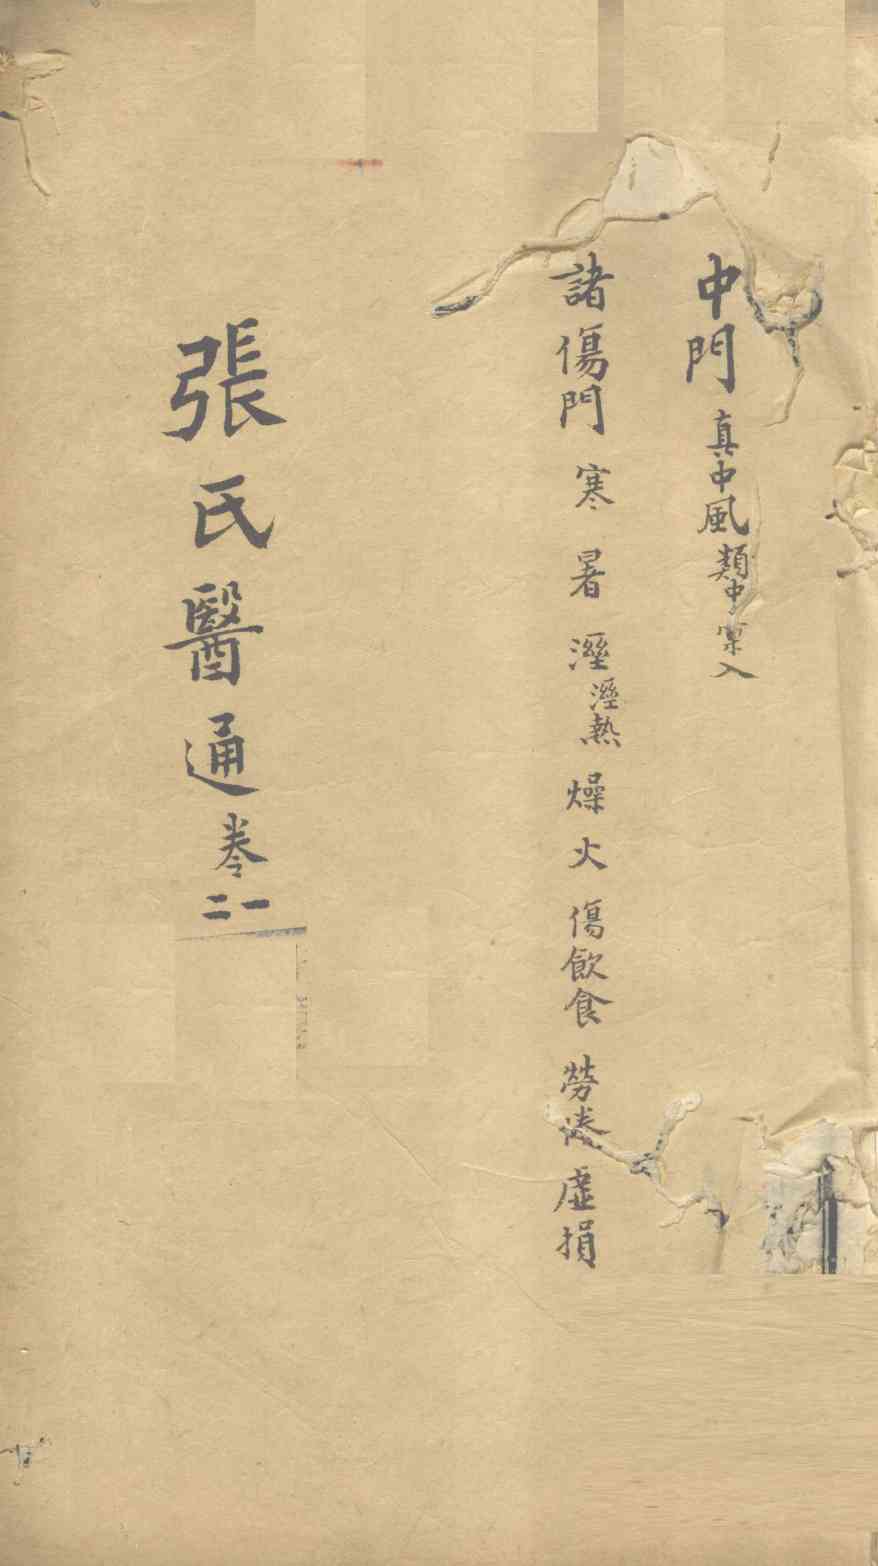 中門 真中風 類中彙入
諸傷門 寒 暑 溼 溼熱 燥 火 傷飲食 勞倦 虛損
張氏醫通卷一二